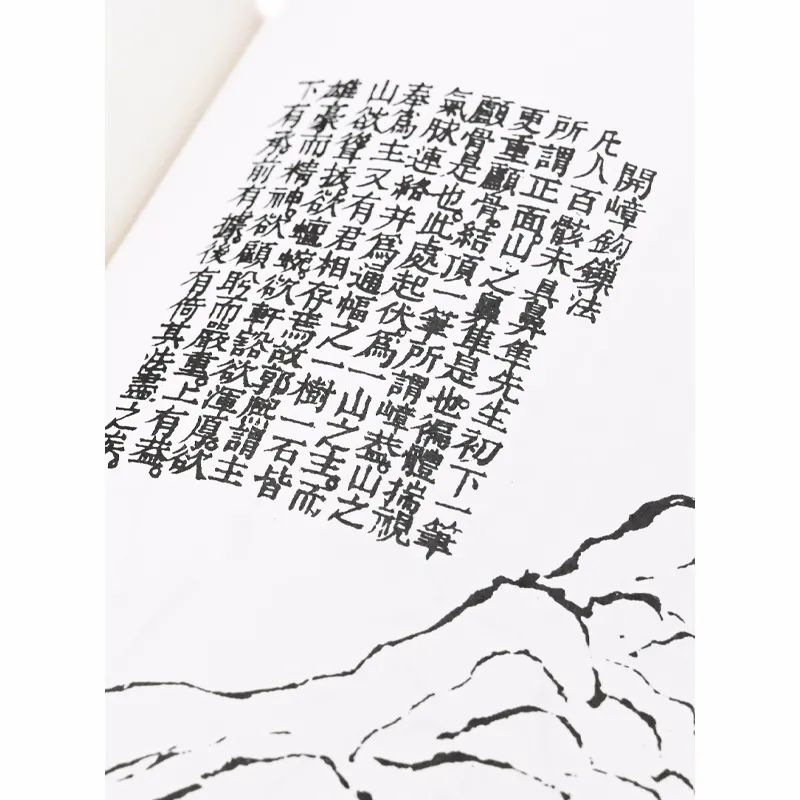 開嶂鈎鎖法
凡人百骸未具鼻隼先生初下一筆
所謂正面。山之鼻隼是也。徧體揣視
更重顱骨。結頂一筆所謂嶂葢。山之
顱骨是也。此處起伏。為一山之主。而
氣脉連絡并為通幅之一樹一石皆
奉為主又有君相存焉故郭熈謂主
山欲聳拔。欲蜿。欲軒豁欲渾厚。欲
雄豪而精神。欲顧盻而嚴重。上有葢。
下有承。前有據。後有倚其法盡之矣。